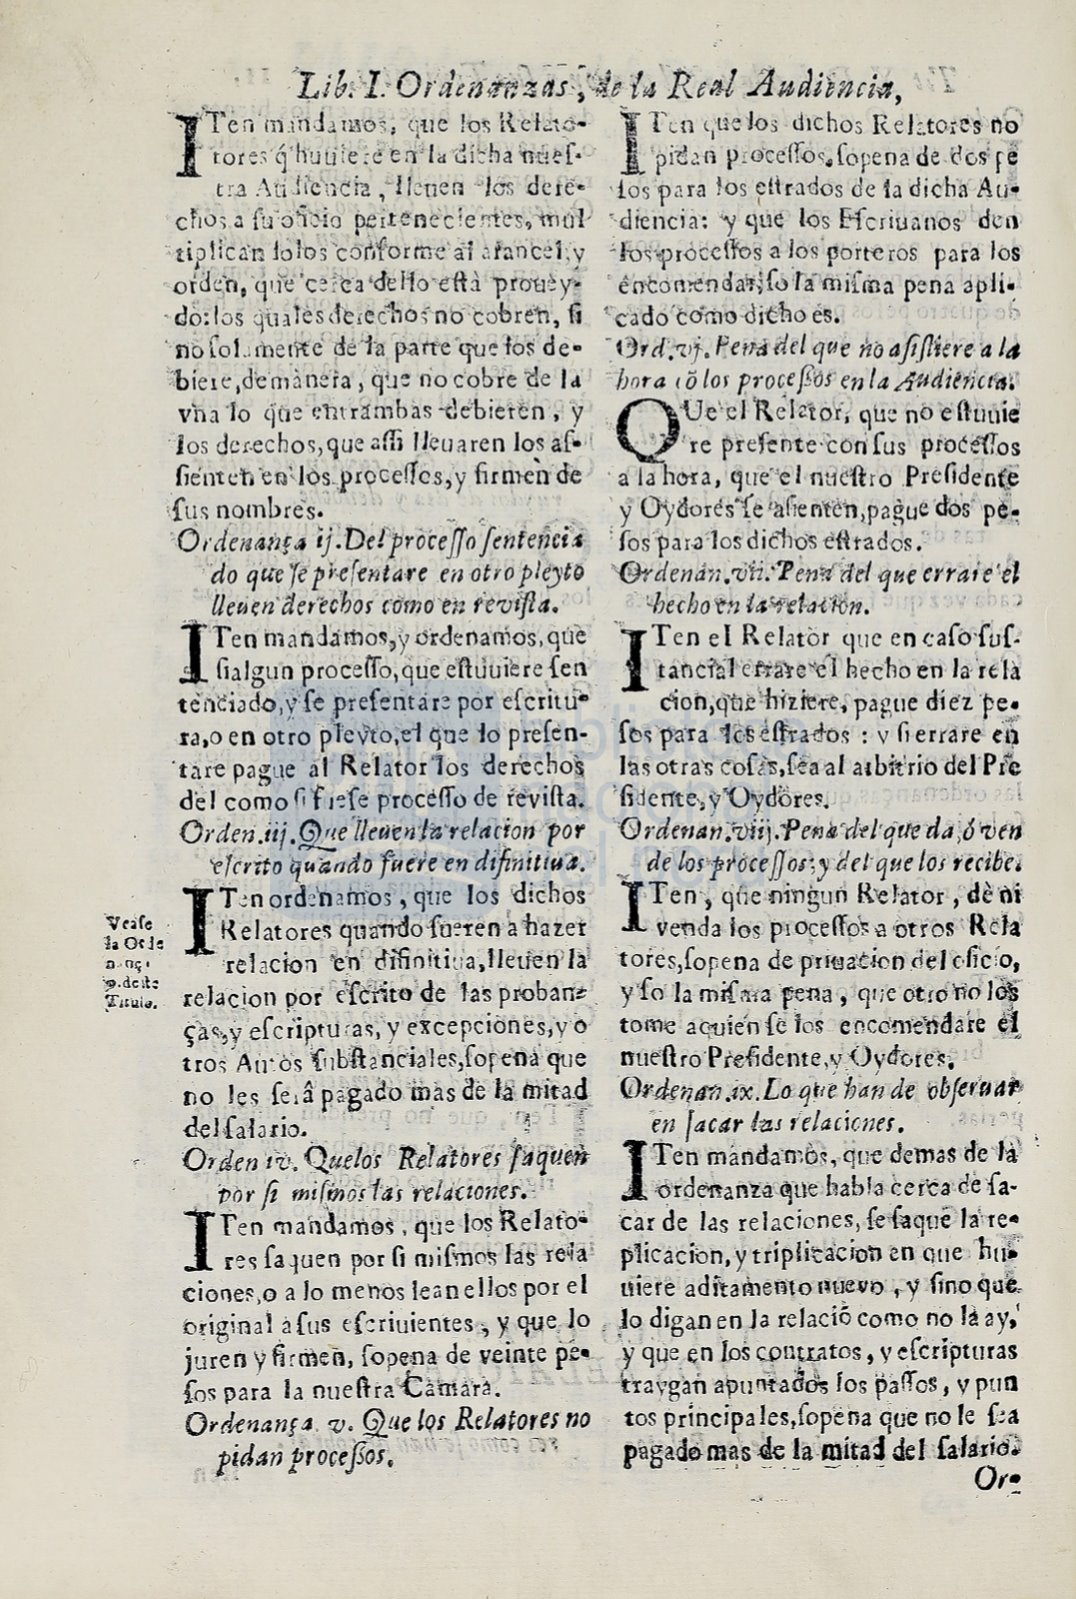 Lib. I. Ordenanzas, de la Real Audiencia,
ITen mandamos, que los Relato-
tores q̃ huuiere en la dicha nues-
tra Audiencia, lleuen los dere-
chos a su oficio pertenecientes, mul
tiplicandolos conforme al arancel, y
orden, que cerca dello està proue y-
do: los quales derechos no cobren, si
no solamente de la parte que los de-
biere, demanera, que no cobre de la
vna lo que entrambas debieren, y
los derechos, que assi lleuaren los as-
sienten en los processos, y firmen de
sus nombres.
Ordenança ij. Del processo sentencia
do que se presentare en otro pleyto
lleuen derechos como en reuista.
ITen mandamos, y ordenamos, que
si algun processo, que estuuiere sen
tenciado, y se presentare por escritu-
ra, o en otro pleyto, el que lo presen-
tare pague al Relator los derechos
del como si fuese processo de revista.
Orden. iij. Que lleuen la relacion por
escrito quando fuere en difinitiua.
ITen ordenamos, que los dichos
Relatores quando fueren a hazer
relacion en difinitiua, lleuen la
relacion por escrito de las proban-
ças, y escripturas, y excepciones, y o
tros Autos substanciales, sopena que
no les serâ pagado mas de la mitad
del salario.
Vease
la Orde
nanç.
9. deste
Titulo.
Orden iv. Que los Relatores saquen
por si mismos las relaciones.
ITen mandamos, que los Relato-
res saquen por si mismos las rela
ciones, o a lo menos lean ellos por el
original a sus escriuientes, y que lo
juren y firmen, sopena de veinte pe-
sos para la nuestra Camara.
Ordenança. v. Que los Relatores no
pidan processos.
ITen que los dichos Relatores no
pidan processos, sopena de dos pe
sos para los estrados de la dicha Au-
diencia: y que los Escriuanos den
los processos a los porteros para los
encomendar, so la misma pena apli-
cado como dicho es.
Ord. vj. Pena del que no asistiere a la
hora cõ los processos en la Audiencia.
QUe el Relator, que no estuuie
re presente con sus processos
a la hora, que el nuestro Presidente
y Oydores se asienten, pague dos pe-
sos para los dichos estrados.
Ordenan. vii. Pena del que errare el
hecho en la relacion.
ITen el Relator que en caso sus-
tancial errare el hecho en la rela
cion, que hiziere, pague diez pe-
sos para los estrados: y si errare en
las otras cosas, sea al arbitrio del Pre
sidente, y Oydores.
Ordenan. viij. Pena del que da, ó ven
de los processos, y del que los recibe.
ITen, que ningun Relator, dè ni
venda los processos a otros Rela
tores, sopena de priuacion del oficio,
y so la misma pena, que otro no los
tome a quien se los encomendare el
nuestro Presidente, y Oydores.
Ordenan. ix. Lo que han de obseruar
en sacar las relaciones.
ITen mandamos, que demas de la
ordenanza que habla cerca de sa-
car de las relaciones, se saque la re-
plicacion, y triplicacion en que hu-
uiere aditamento nuevo, y sino que
lo digan en la relaciõ como no la ay,
y que en los contratos, y escripturas
traygan apuntados los passos, y pun
tos principales, sopena que no le sea
pagado mas de la mitad del salario.
Or-